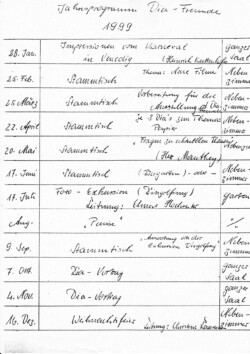 Jahresprogramm Dia-Freunde
1999
28. Jan. Impressionen vom Karneval in Venedig (Heinrich ganzer Saal
25. Feb. Stammtisch Thema: neue Filme Neben-zimmer
25. März Stammtisch Vorbereitung für die Ausstellung Neben-zimmer
22. April Stammtisch je 3 Dia's zum Thema: Neben-zimmer
20. Mai Stammtisch "Fragen zu Neben-zimmer
(Herr
17. Juni Stammtisch - oder - Neben-zimmer
17. Juli Foto-Exkursion (Dingolfing) Leitung: Garten
Aug. "Pause" %
9. Sep. Stammtisch Exkursion Dingolfing" Neben-zimmer
7. Okt. Dia-Vortrag ganzer Saal
4. Nov. Dia-Vortrag ganzer Saal
16. Dez. Weihnachtsfeier Leitung: Neben-zimmer